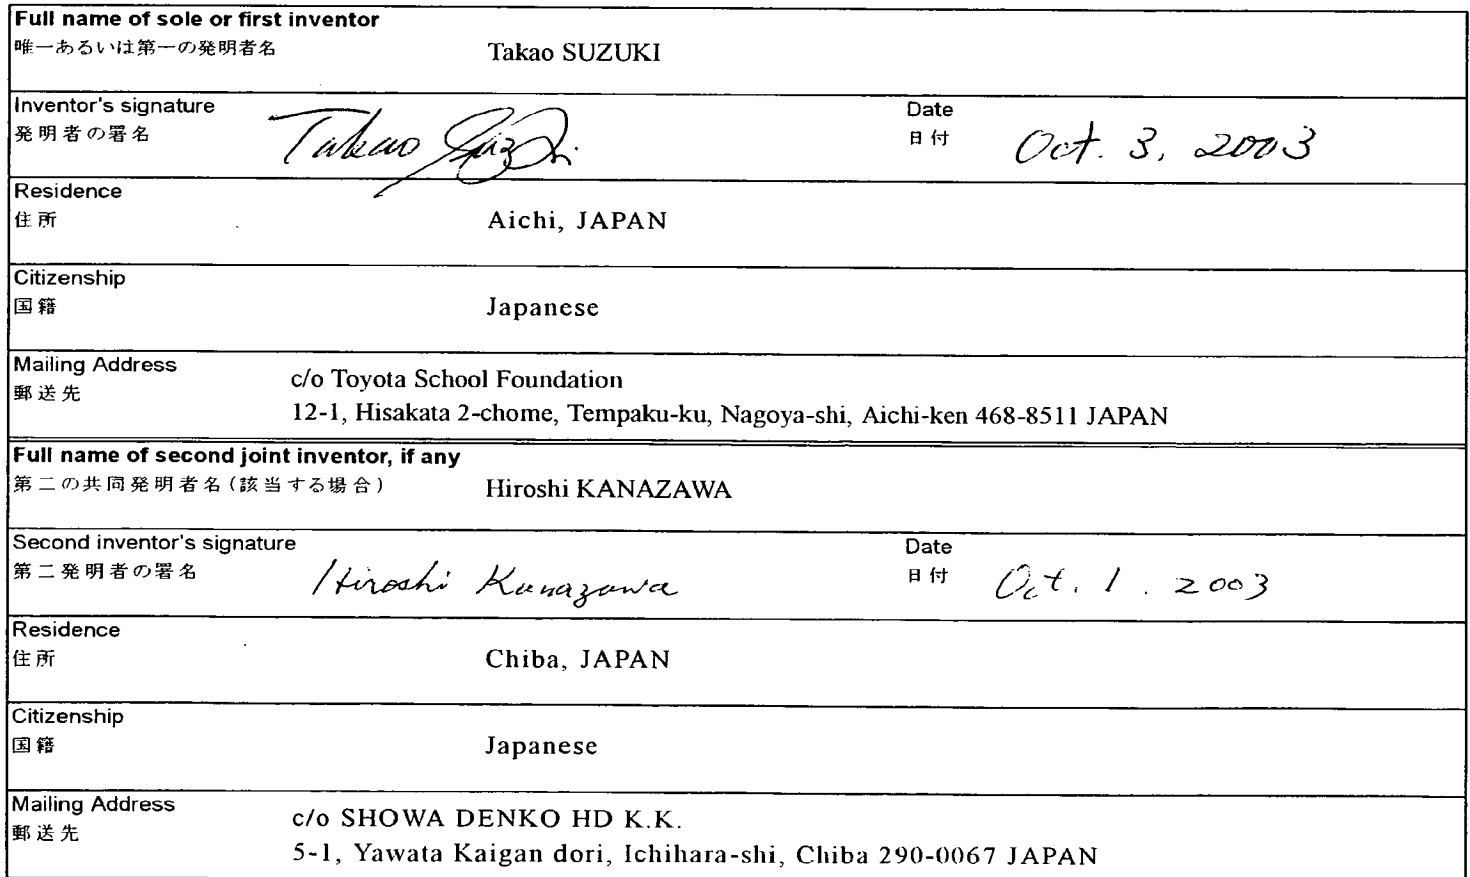 Full name of sole or first inventor
唯一あるいは第一の発明者名 Takao SUZUKI
Inventor's signature Date
発明者の署名 Takao Suzuki 日付 Oct. 3, 2003
Residence
住所 Aichi, JAPAN
Citizenship
国籍 Japanese
Mailing Address
郵送先 c/o Toyota School Foundation
12-1, Hisakata 2-chome, Tempaku-ku, Nagoya-shi, Aichi-ken 468-8511 JAPAN
Full name of second joint inventor, if any
第二の共同発明者名(該当する場合) Hiroshi KANAZAWA
Second inventor's signature Date
第二発明者の署名 Hiroshi Kanazawa 日付 Oct. 1. 2003
Residence
住所 Chiba, JAPAN
Citizenship
国籍 Japanese
Mailing Address
郵送先 c/o SHOWA DENKO HD K.K.
5-1, Yawata Kaigan dori, Ichihara-shi, Chiba 290-0067 JAPAN